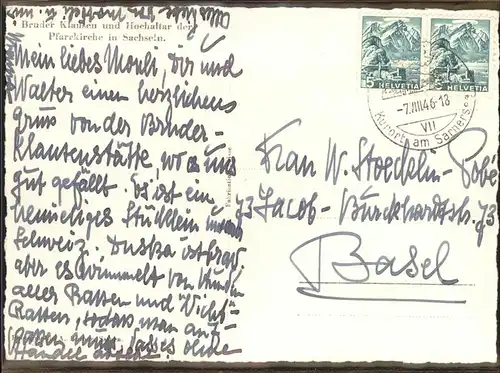 Bruder Klausen und Hochaltar der
Pfarrkirche in Sachseln.
Mein liebes Mouli, Dir und
Walter einen herzlichen
Gruss von der Bruder-
Klausenstätte, wo es uns
gut gefällt. Es ist ein
heimeliges Stücklein
Schweiz.
aber es wimmelt von Hunden
aller Rassen und Nicht-
Rassen, sodass man auf-
passen muss, dass es ohne
Händel
5 HELVETIA
HELVETIA
-7.VIII.46-18
VII
Kurort am Sarnersee
Frau W. Stoecklin-
73 Jacob-Burckhardtstr. 73
Basel